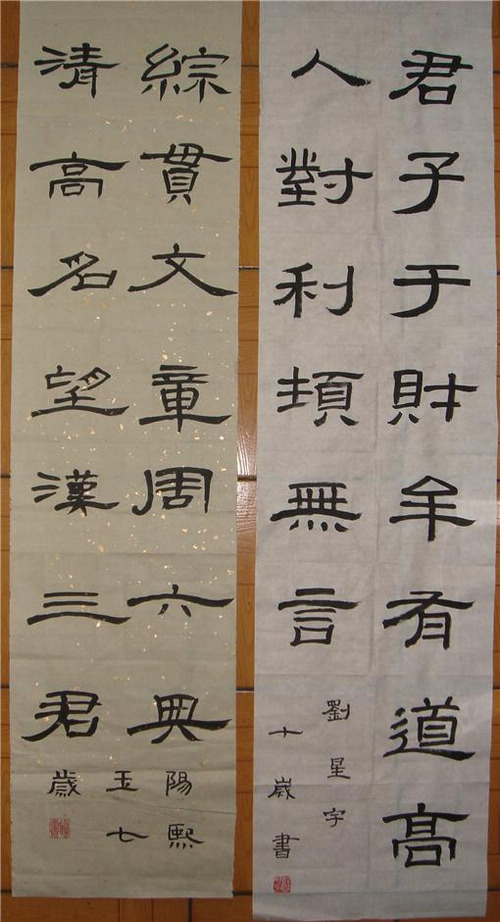 君子于財牟有道高
人對利須無言
劉星宇
十歲書
綜貫文章周六典
清高名望漢三君
陽熙
玉七
歲